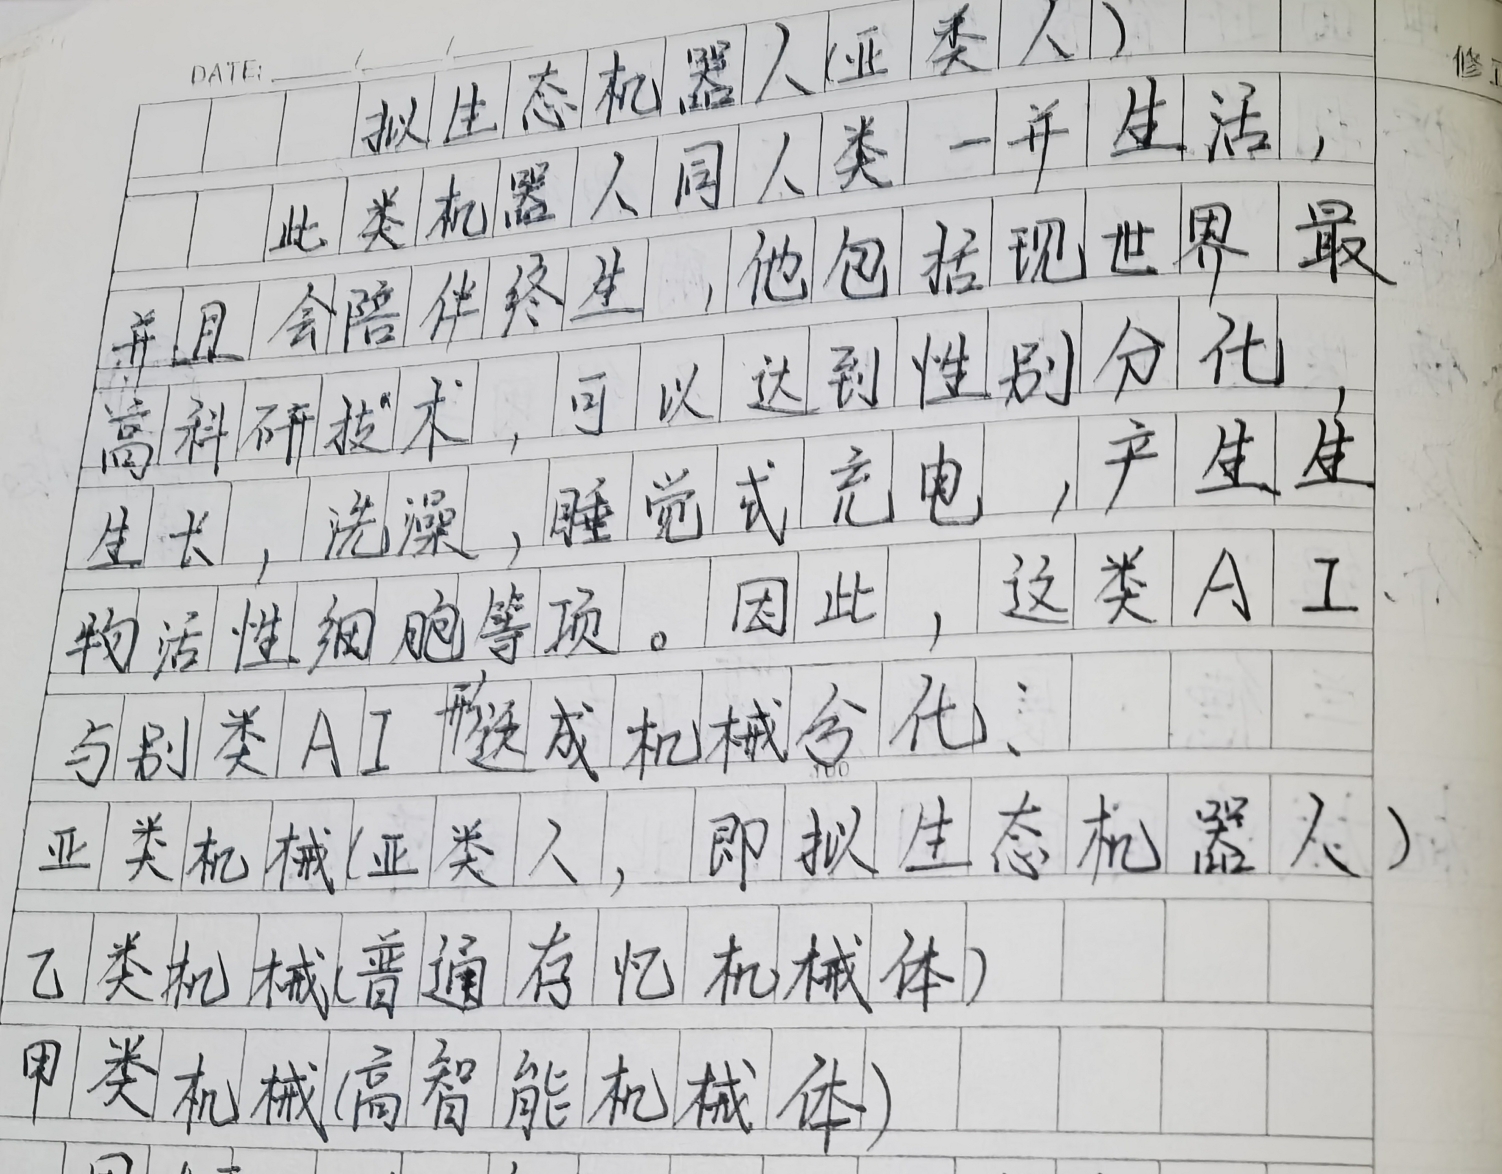 DATE: / /
修正
拟生态机器人(亚类人)
此类机器人同人类一并生活,
并且会陪伴终生,他包括现世界最
高科研技术,可以达到性别分化,
生长,洗澡,睡觉式充电,产生生
物活性细胞等项。因此,这类AI
与别类AI形成机械分化:
亚类机械(亚类人,即拟生态机器人)
乙类机械(普通存忆机械体)
甲类机械(高智能机械体)
100